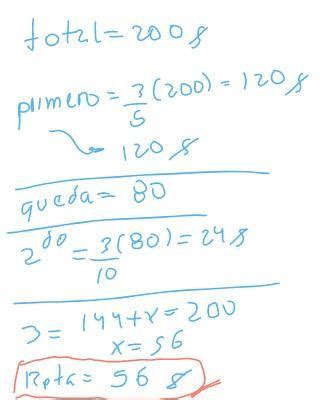 total = 200 $
primero = 3/5 (200) = 120 $
120 $
queda = 80
2do = 3/10 (80) = 24 $
3 = 144 + x = 200
x = 56
Rpta = 56 $